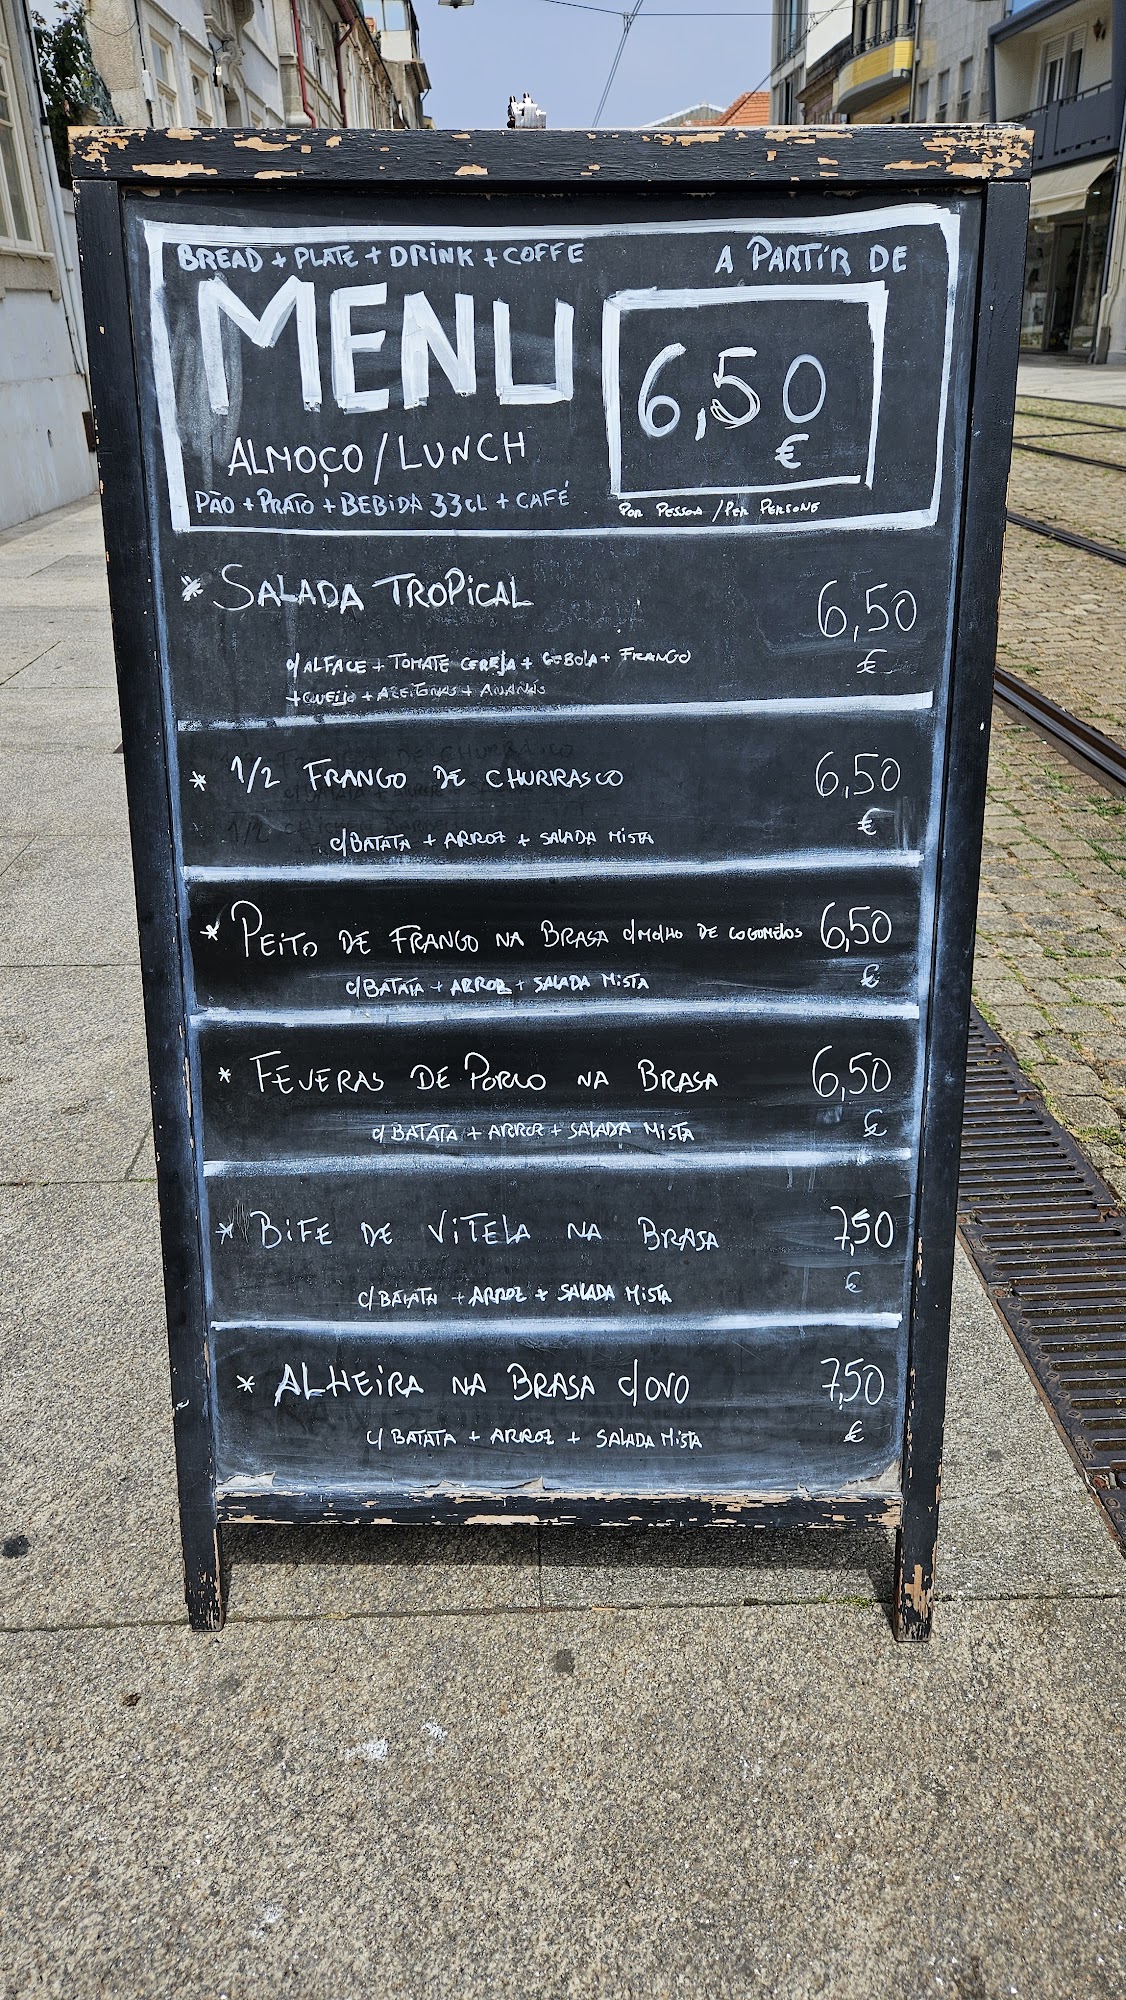 BREAD + PLATE + DRINK + COFFE
A PARTIR DE
MENU
6,50
€
ALMOÇO/LUNCH
PÃO + PRATO + BEBIDA 33CL + CAFÉ
POR PESSOA / PER PERSONE
* SALADA TROPICAL 6,50
€
c/ALFACE + TOMATE CEREJA + CEBOLA + FRANGO
+ QUEIJO + AZEITONAS + ANANÁS
* 1/2 FRANGO DE CHURRASCO 6,50
€
c/BATATA + ARROZ + SALADA MISTA
* PEITO DE FRANGO NA BRASA c/MOLHO DE COGOMELOS 6,50
€
c/BATATA + ARROZ + SALADA MISTA
* FEVERAS DE PORCO NA BRASA 6,50
€
c/BATATA + ARROZ + SALADA MISTA
* BIFE DE VITELA NA BRASA 7,50
€
c/BATATA + ARROZ + SALADA MISTA
* ALHEIRA NA BRASA c/OVO 7,50
€
c/BATATA + ARROZ + SALADA MISTA